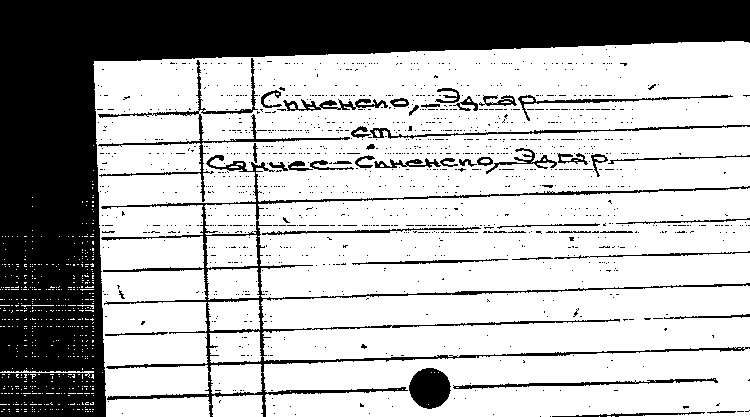 Синенсио, Эдгар
см.
Санчес-Синенсио, Эдгар.